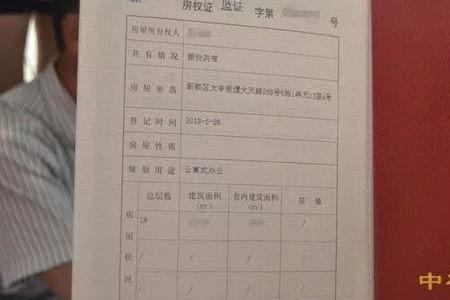 房权证 监证 字第 号
房屋所有权人
共有情况 按份共有
房屋坐落 新都区大丰街道大天路268号6栋1单元13层4号
登记时间 2013-5-28
房屋性质
规划用途 公寓式办公
总层数 建筑面积(m²) 套内建筑面积(m²) 其他
房屋状况
18 /
/ / / /
/ / / /
中